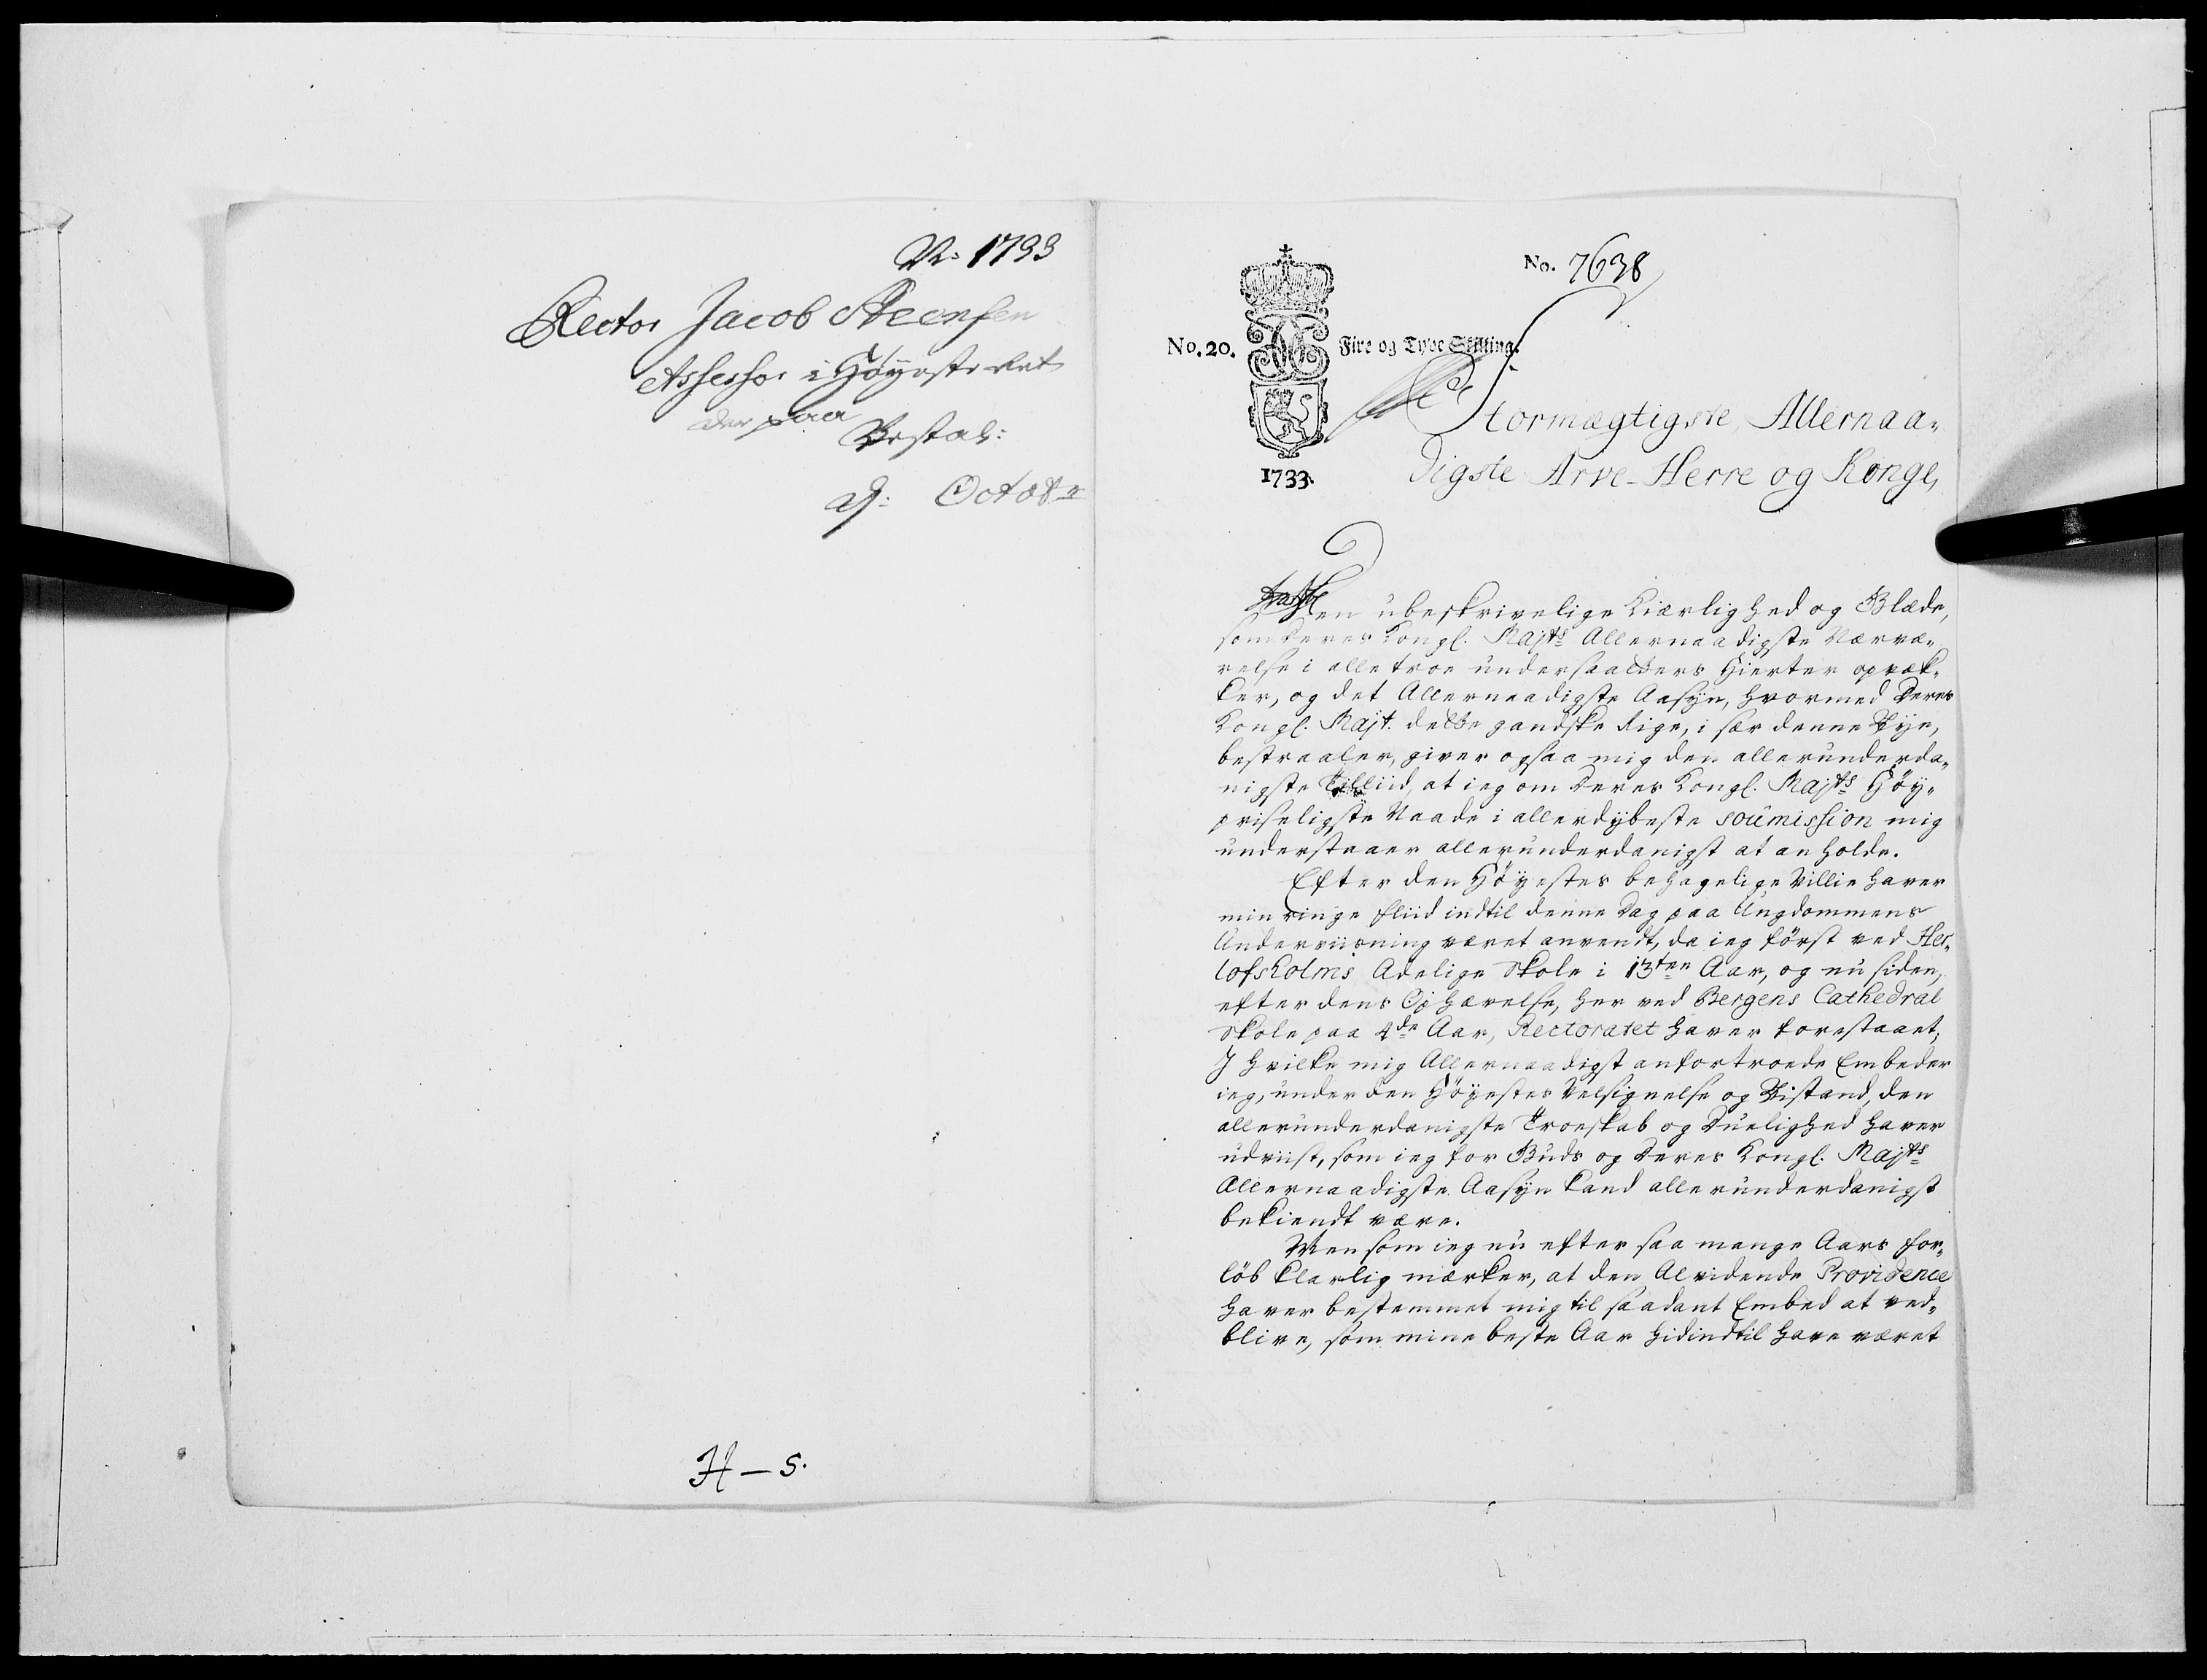 No: 1733
Rector Jacob Steensen
Assessor i Høyeste Ret
der paa
Bestal:
d. Octobr
H – S.
No. 7638
No. 20.
Fire og Tyve Skilling.
1733.
Stormægtigste Allernaa-
digste Arve-Herre og Konge,
Den ubeskrivelige Kiærlighed og Glæde,
som Deres Kongl. Majts Allernaadigste Nærvæ-
relse i alle troe undersaatters Hierter opvæk-
ker, og det Allernaadigste Aasyn, hvormed Deres
Kongl. Majt. dette gandske Rige, i sær denne Bye,
bestraaler, giver ogsaa mig den allerunderda-
nigste Tilliid, at ieg om Deres Kongl. Majts Høy-
priseligste Naade i allerdybeste soumission mig
understaaer allerunderdanigst at anholde.
Efter den Høyestes behagelige Villie haver
min ringe fliid indtil denne Dag paa Ungdommens
Underviisning været anvendt, da ieg først ved Her-
lofsholms Adelige Skole i 13ten Aar, og nu siden,
efter dens Ophævelse, her ved Bergens Cathedral
Skole paa 4de Aar, Rectoratet haver forestaaet;
I hvilke mig Allernaadigst anfortroede Embeder
ieg, under den Høyestes Velsignelse og Bistand, den
allerunderdanigste Troeskab og Duelighed haver
udviist, som ieg for Guds og Deres Kongl. Majts
Allernaadigste Aasyn kand allerunderdanigst
bekiendt være.
Men som ieg nu efter saa mange Aars for-
løb klarlig mærker, at den Alvidende Providence
haver bestemmet mig til saadant Embed at ved-
blive, som mine beste Aar hidindtil have været